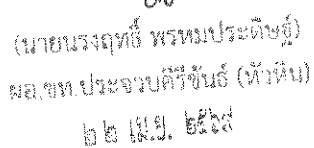 (นายนรงฤทธิ์ พรหมประดิษฐ์)
ผอ.ขท.ประจวบคีรีขันธ์ (หัวหิน)
๒๒ เม.ย. ๒๕๖๙